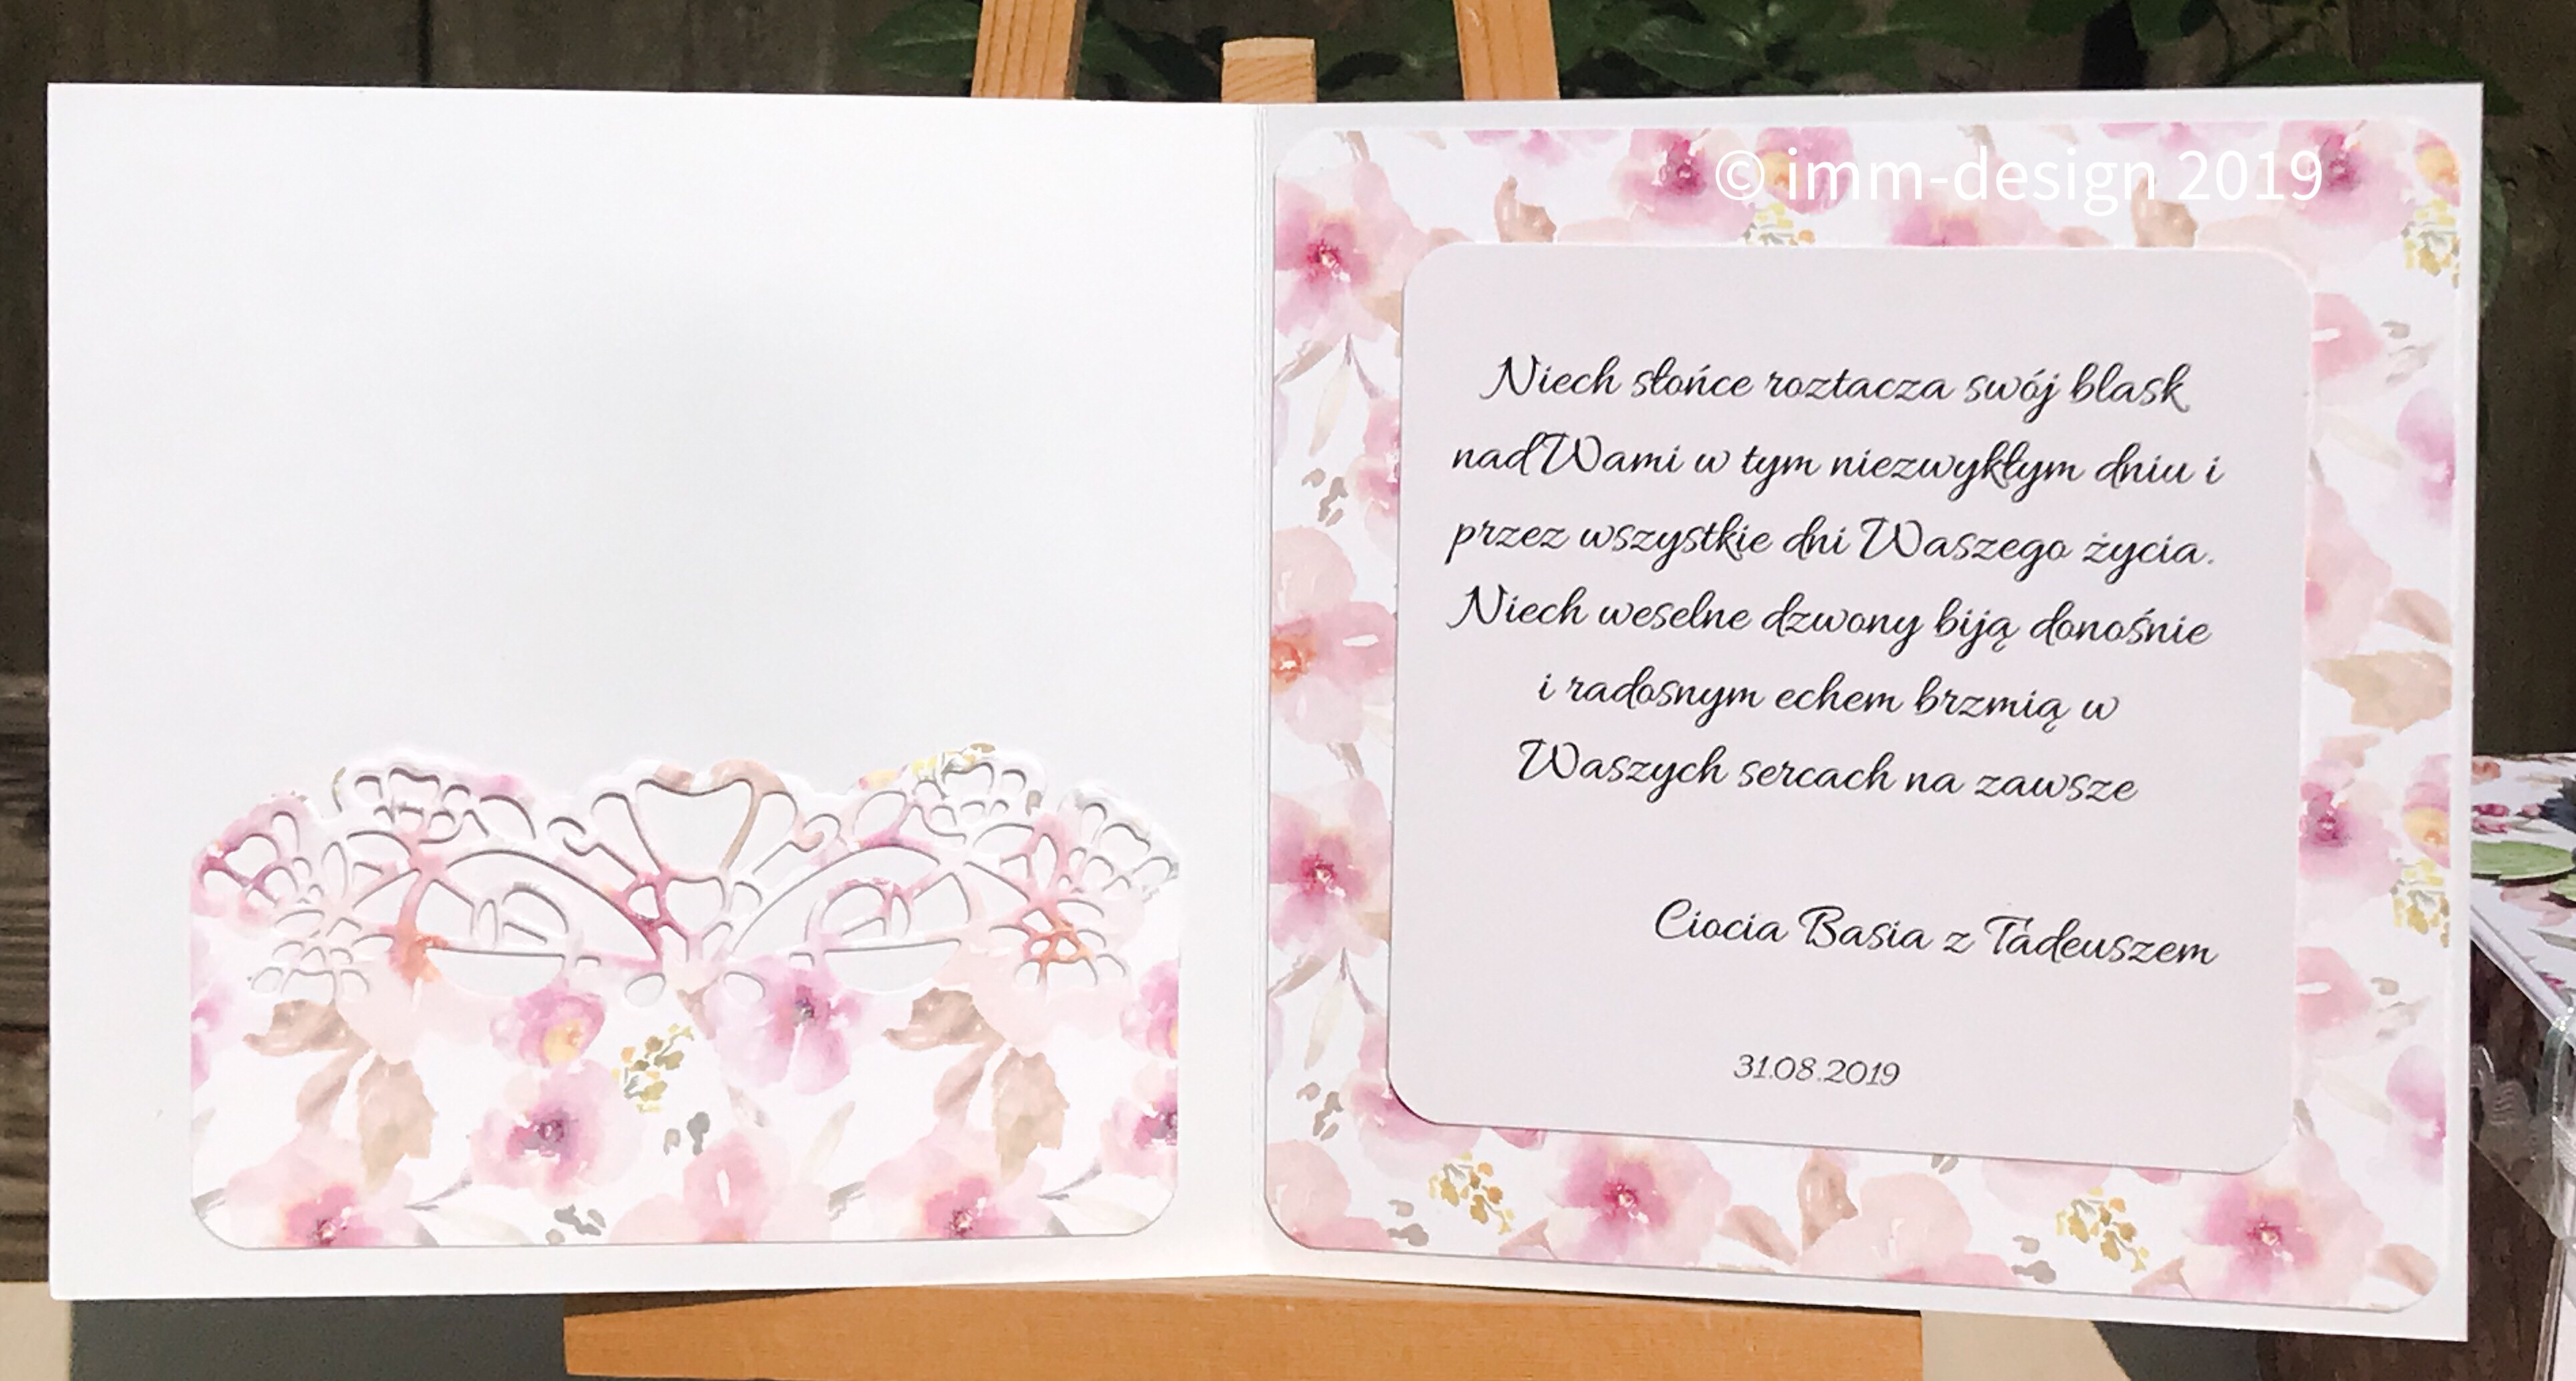 © imm-design 2019
Niech słońce roztacza swój blask
nad Wami w tym niezwykłym dniu i
przez wszystkie dni Waszego życia.
Niech weselne dzwony biją donośnie
i radosnym echem brzmią w
Waszych sercach na zawsze
Ciocia Basia z Tadeuszem
31.08.2019